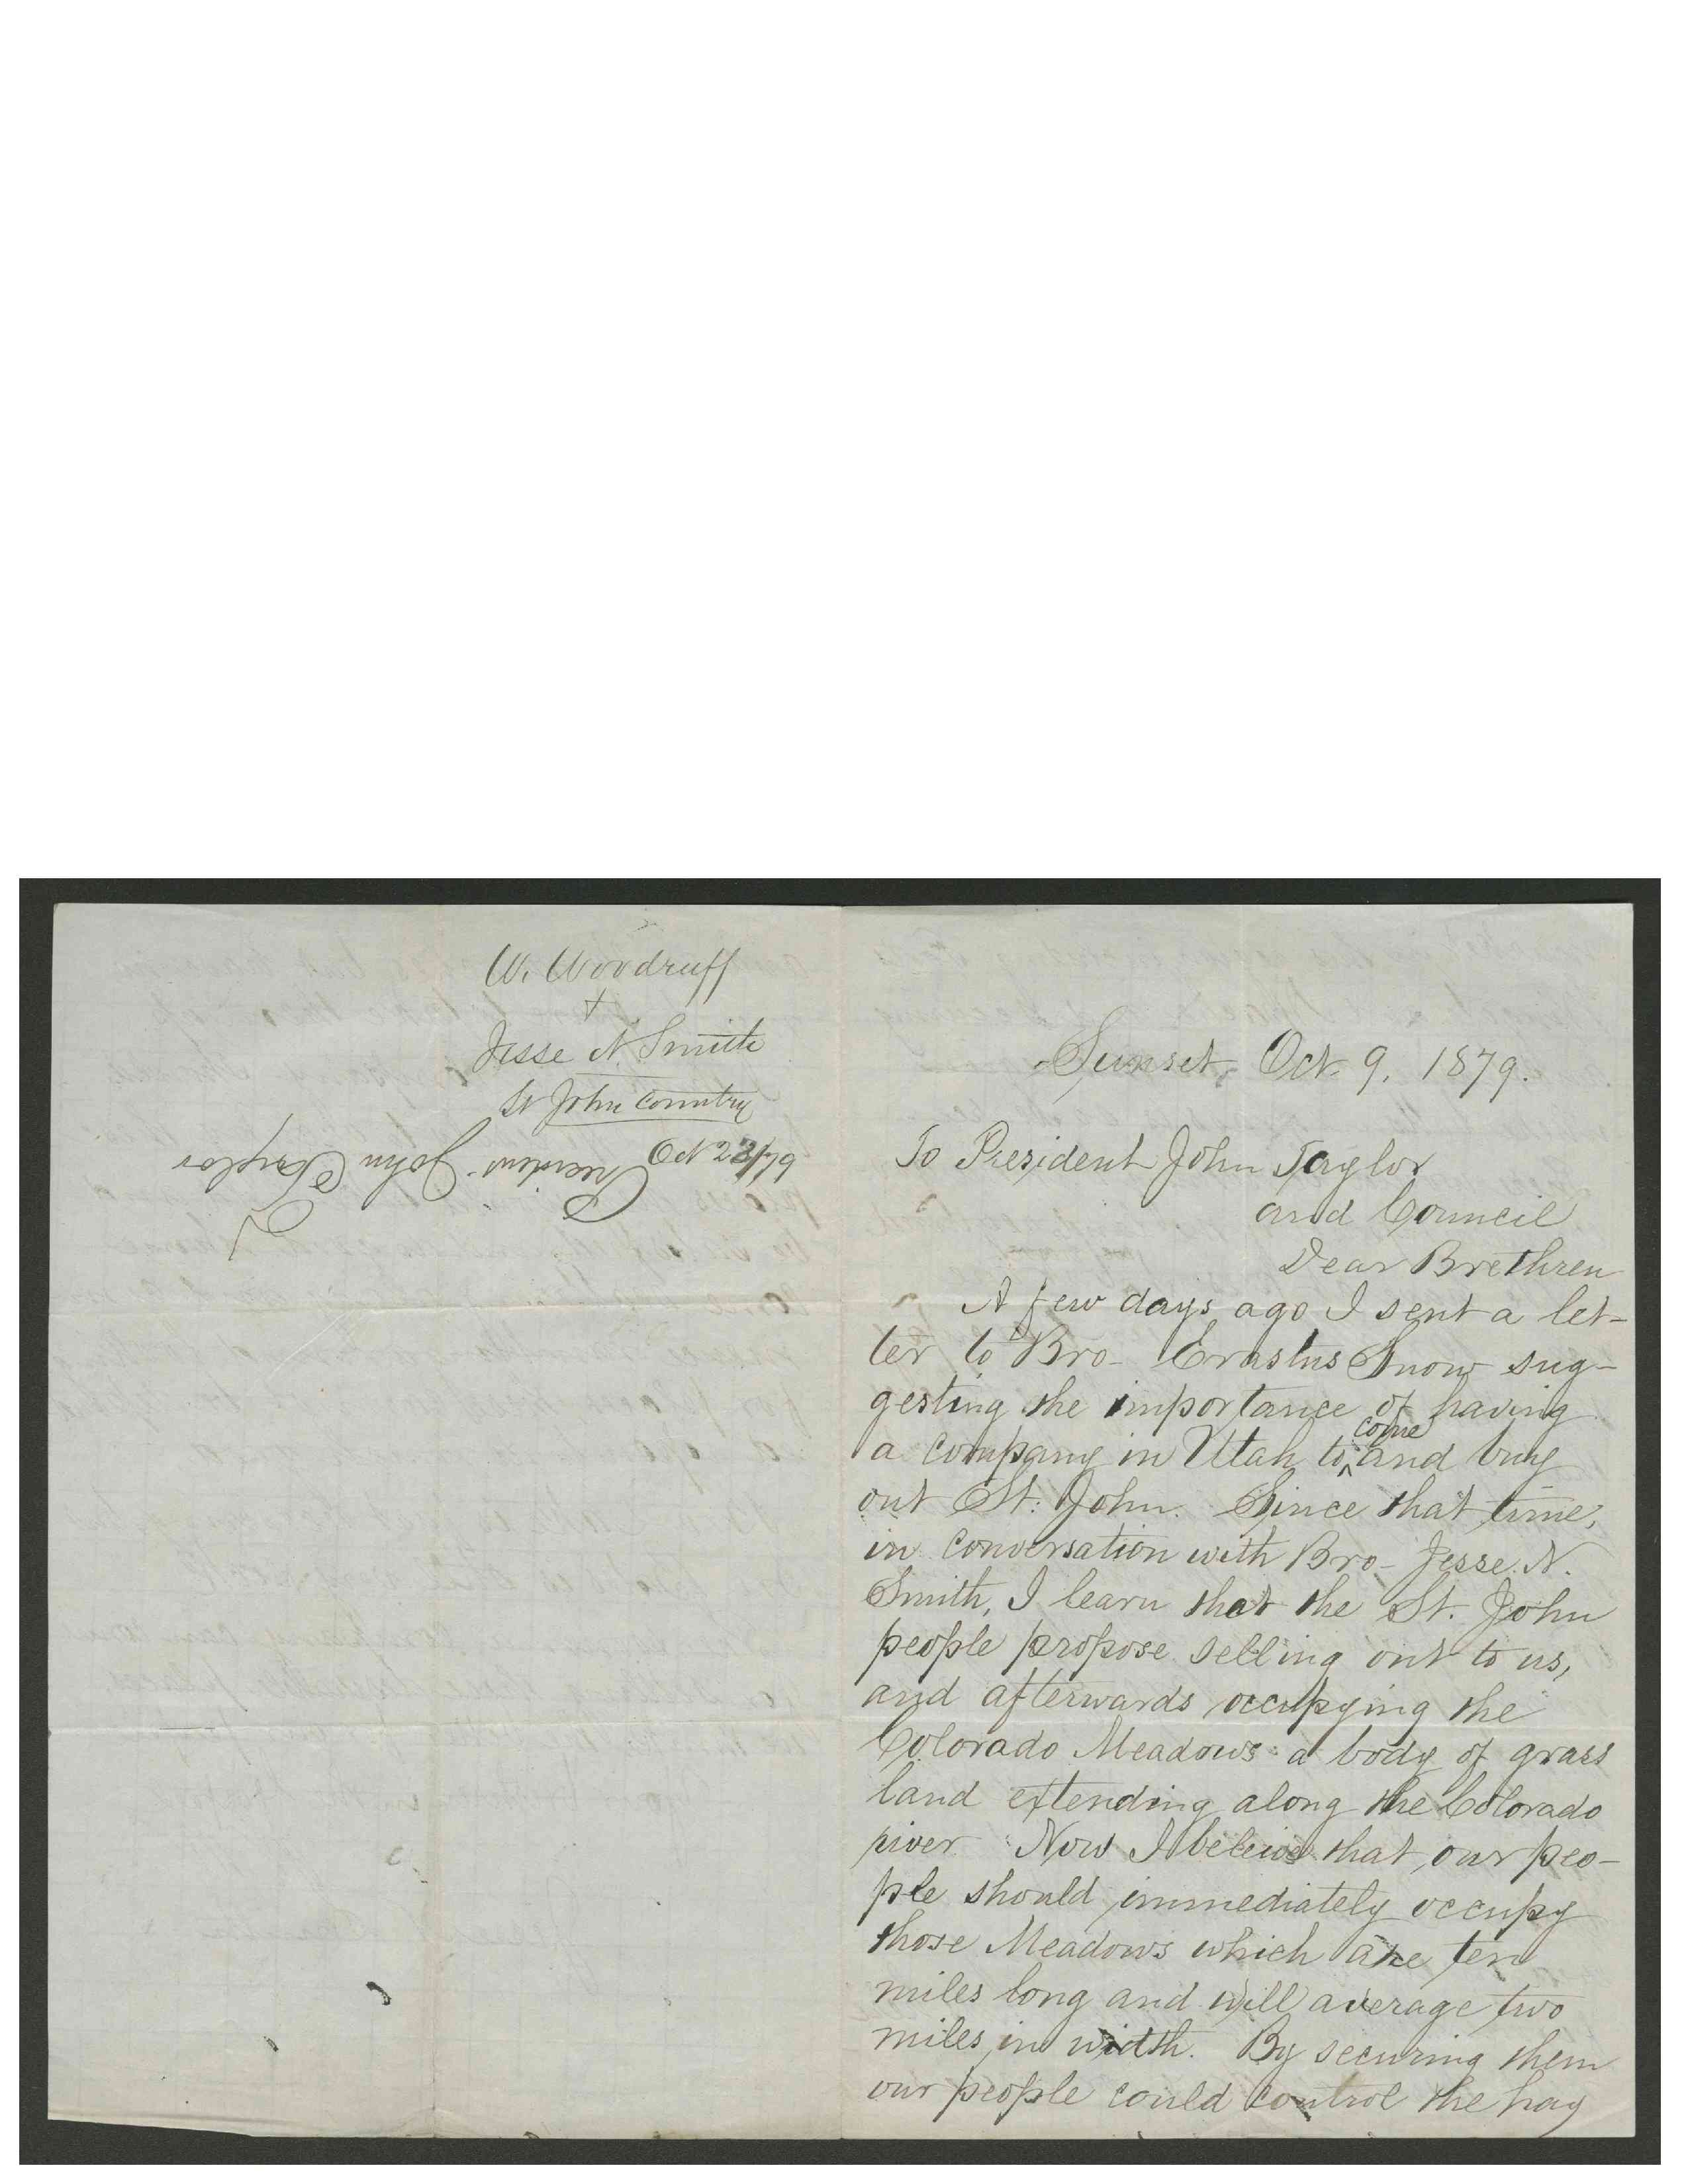 W. Woodruff
+
Jesse N. Smith
St John Country
Oct 23/79
President John Taylor
Sunset, Oct 9, 1879.
To President John Taylor
and Council
Dear Brethren
A few days ago I sent a let-
ter to Bro- Erastus Snow sug-
gesting the importance of having
a company in Utah to ^come and buy
out St. John. Since that time,
in conversation with Bro- Jesse N.
Smith, I learn that the St. John
people propose selling out to us,
and afterwards occupying the
Colorado Meadows a body of grass
land extending along the Colorado
river. Now I beleive that our peo-
ple should immediately occupy
those Meadows which are ten
miles long and will average two
miles in width. By securing them
our people could control the hay